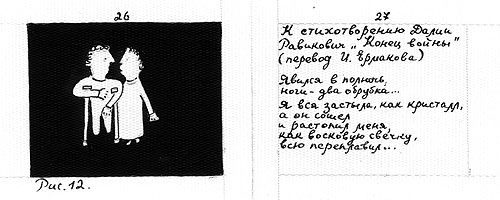 26
Рис. 12.
27
К стихотворению Далии
Равикович „Конец войны"
(перевод И. Ермакова)
Явился в полночь,
ноги - два обрубка...
Я вся застыла, как кристалл,
а он сошёл
и растопил меня,
как восковую свечку,
всю переплавил...